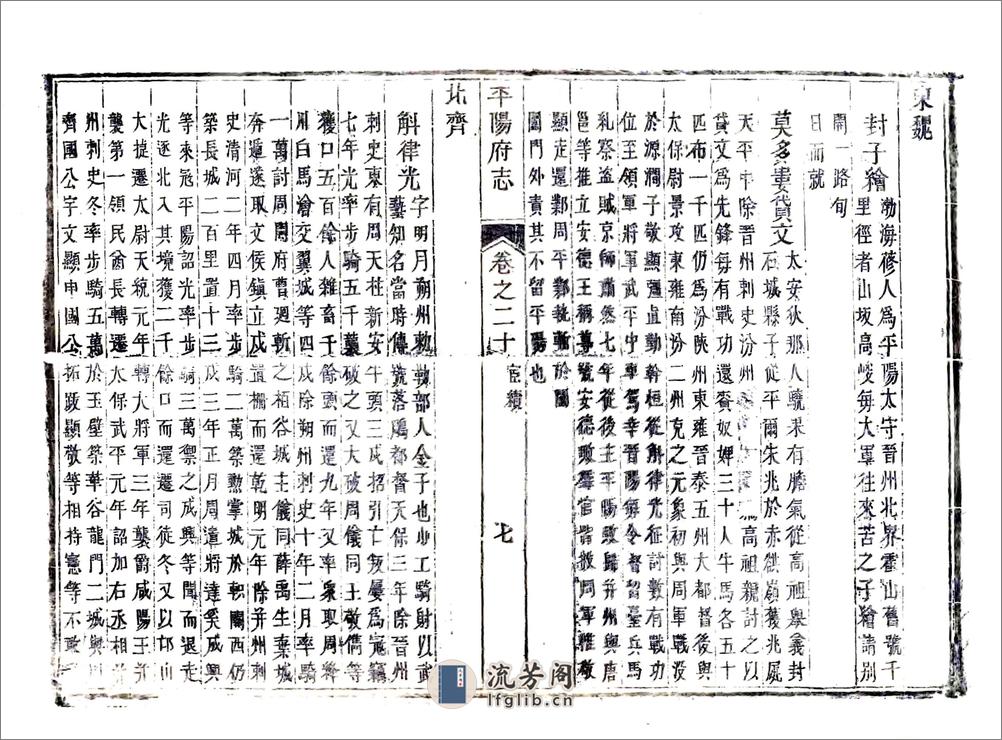 東魏
封子繪
渤海蓚人爲平陽太守晉州北界霍山舊號千
里徑者山坂高峻每大軍往來苦之子繪請別
開一路旬
日而就
莫多婁貸文
太安狄那人驍果有膽氣從高祖舉義封
石城縣子從平爾朱兆於赤𧮾嶺獲兆屍
天平中除晉州刺史汾州
高祖親討之以
貸文爲先鋒每有戰功還賚奴婢三十人牛馬各五十
匹布一千匹仍爲汾陜州東雍晉泰五州大都督後與
太保尉景攻東雍南汾二州克之元象初與周軍戰没
於源澗子敬顯彊直勤幹恒從斛律光征討數有戰功
位至領軍將軍武平中車駕幸晉陽每令督留臺兵馬
糺察盜賊京師肅然七年從後主平陽敗歸并州與唐
邕等推立安德王稱尊號安德敗羣官皆投周軍唯敬
顯走還鄴周平鄴執斬於閶
闔門外責其不留平陽也
平陽府志
卷之二十
宦績
七
北齊
斛律光
字明月朔州敕勒部人金子也少工騎射以武
藝知名當時傳號落鵰都督天保三年除晉州
刺史東有周天柱新安牛頭三戍招引亡叛屢爲寇竊
七年光率步騎五千襲破之又大破周儀同王敬儁等
獲口五百餘人雜畜千餘頭而還九年又率衆取周絳
川白馬澮交翼城等四戍除朔州刺史十年二月率騎
一萬討周開府曹迴斬之柏谷城主儀同薛禹生棄城
奔遁遂取文侯鎮立戍置栅而還乾明元年除并州刺
史清河二年四月率步騎二萬築勲掌城於軹關西仍
築長城二百里置十三戍三年正月周遣將達奚成興
等來寇平陽詔光率步騎三萬禦之成興等聞而退走
光逐北入其境獲二千餘口而還遷司徒冬又以邙山
大捷遷太尉天統元年轉大將軍三年襲爵咸陽王并
襲第一領民酋長轉遷太保武平元年詔加右丞相并
州刺史冬率步騎五萬於玉壁築華谷龍門二城與
齊國公宇文顯申國公拓跋顯敬等相持憲等不敢
流芳阁
lfglib.cn